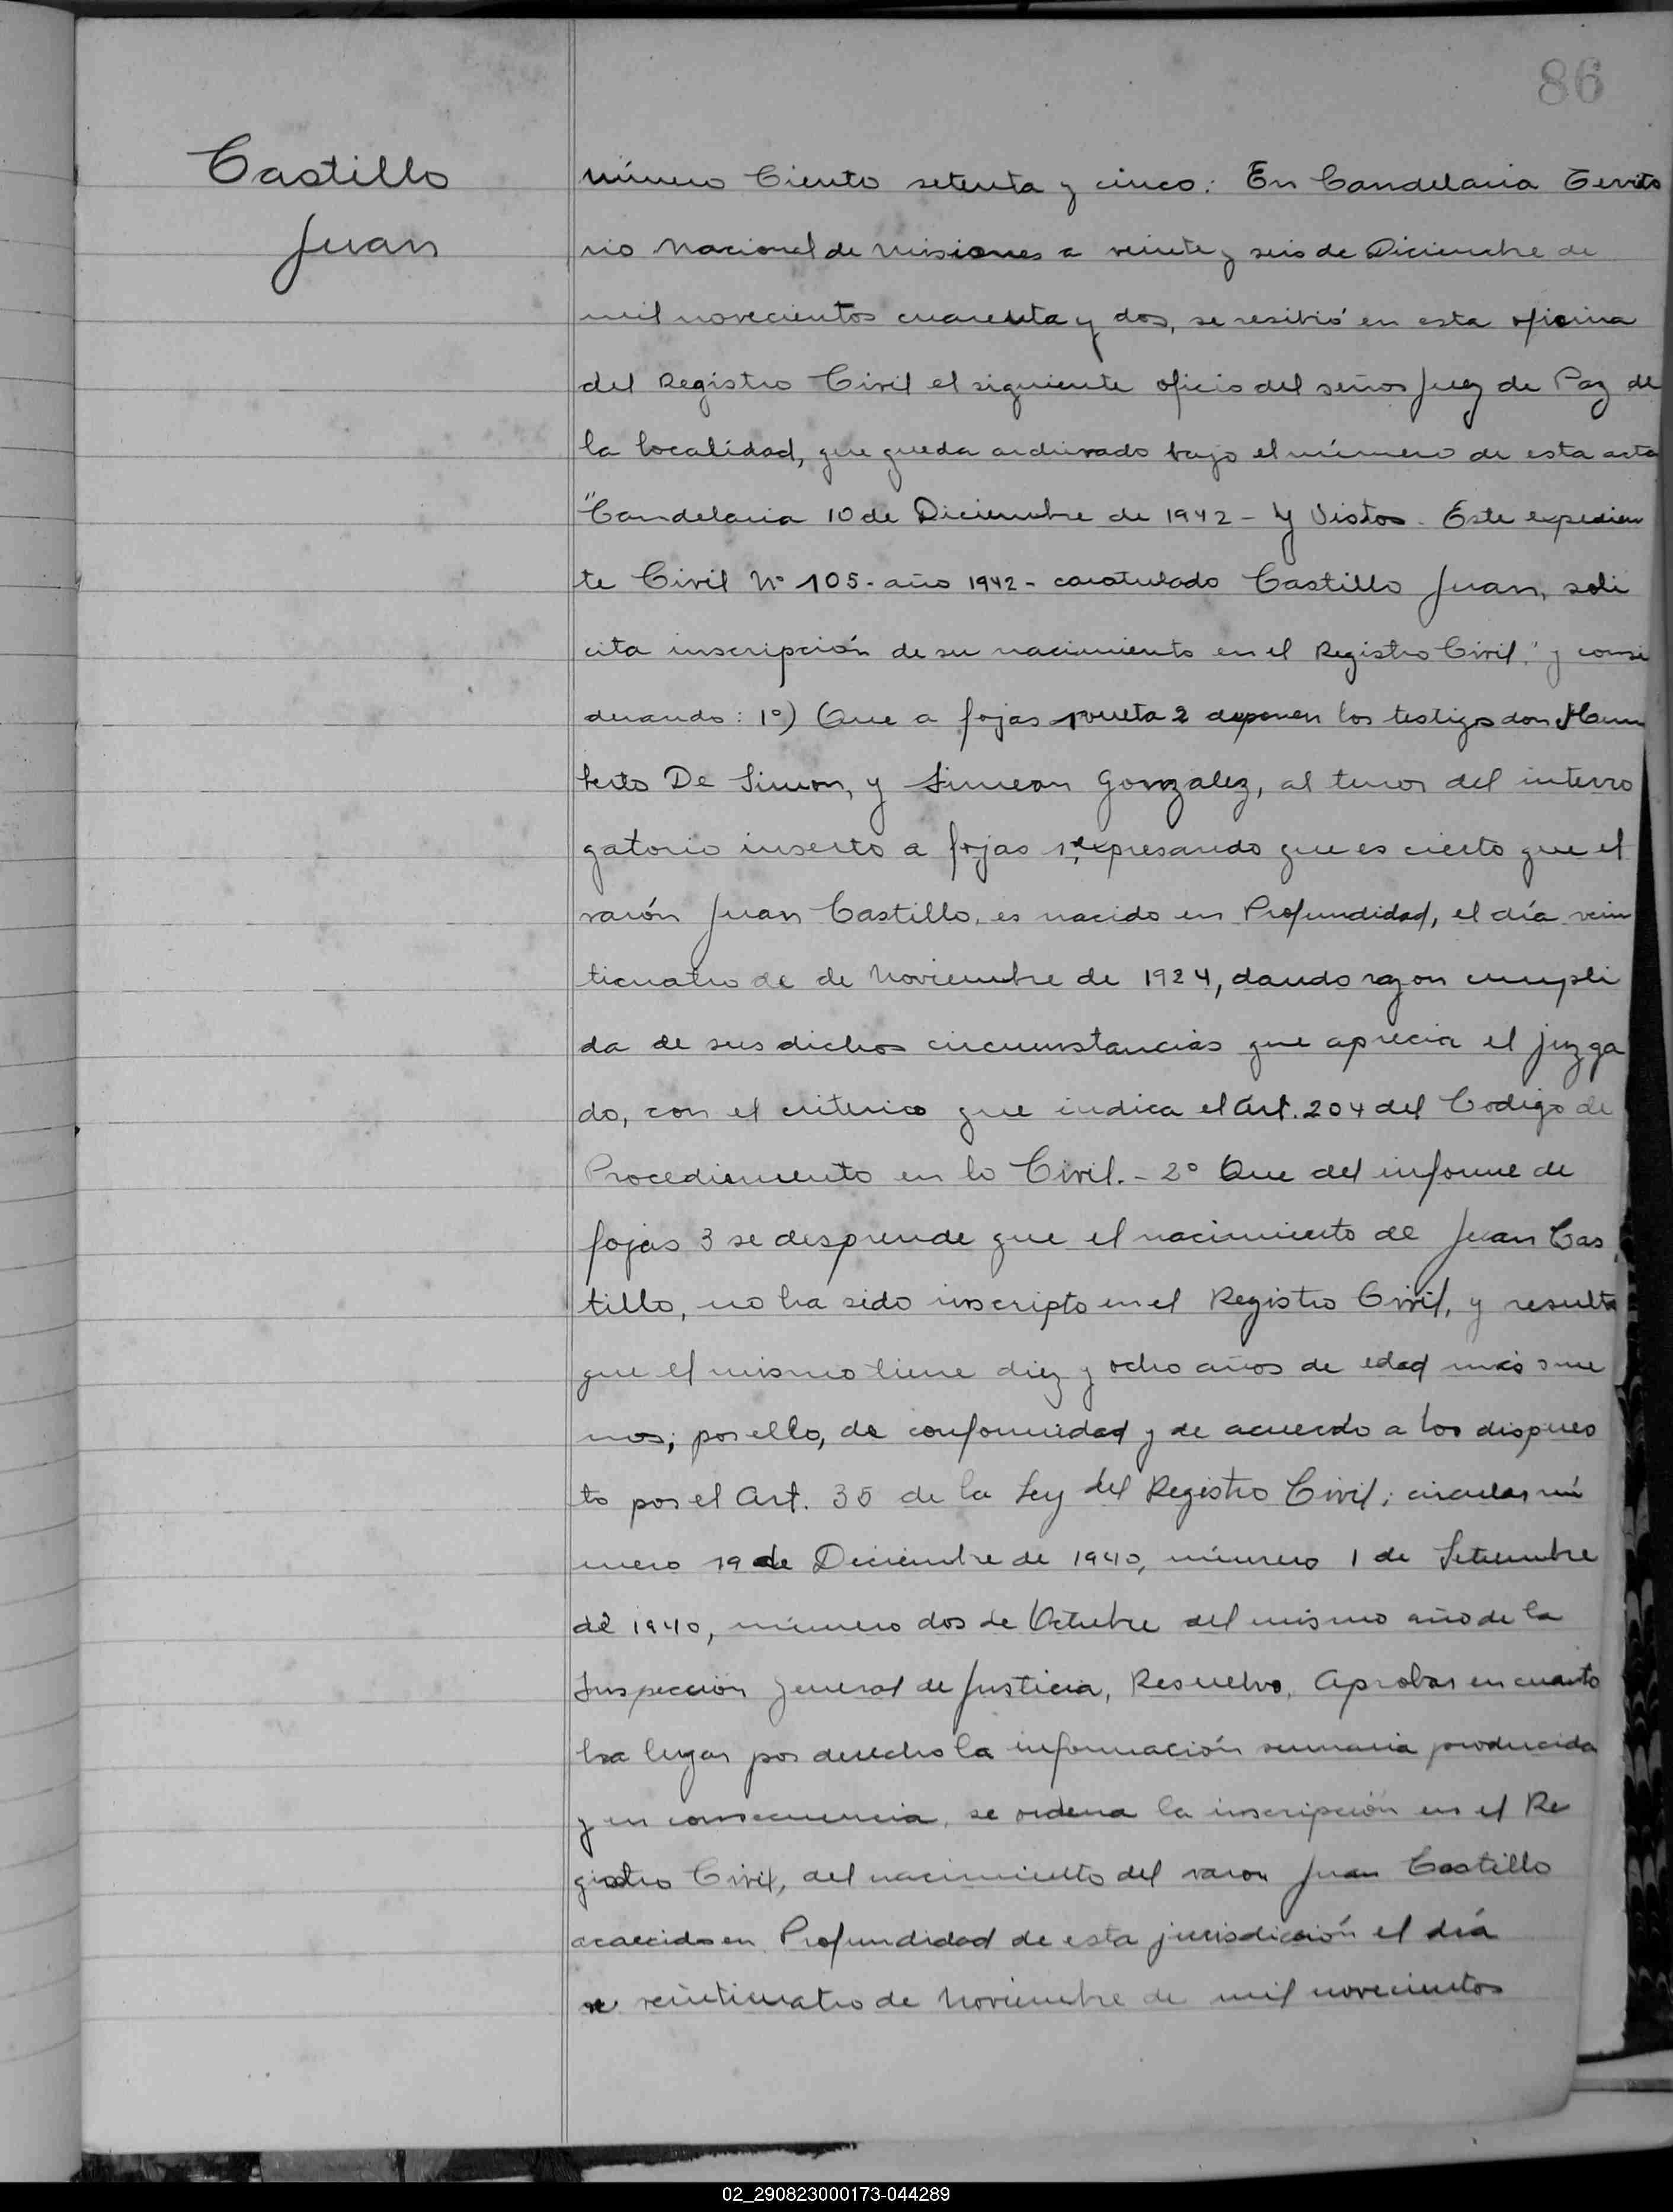 86
Castillo
Juan
número Ciento setenta y cinco: En Candelaria Territo
rio Nacional de Misiones a veinte y seis de Diciembre de
mil novecientos cuarenta y dos, se resibió en esta oficina
del Registro Civil el siguiente oficio del señor Juez de Paz de
la localidad, que queda archivado bajo el número de esta acta
"Candelaria 10 de Diciembre de 1942 - Y Vistos - Este expedien
te Civil Nº 105 - año 1942 - caratulado Castillo Juan, soli
cita inscripción de su nacimiento en el Registro Civil." y consi
derando: 1º) Que a fojas 1 vuelta 2 deponen los testigos don Hum
berto De Simon, y Simeon Gonzalez, al tenor del interro
gatorio inserto a fojas 1, expresando que es cierto que el
varón Juan Castillo, es nacido en Profundidad, el día vein
ticuatro de de Noviembre de 1924, dando razon cumpli
da de sus dichos circunstancias que aprecia el juzga
do, con el criterico que indica el Art. 204 del Codigo de
Procedimiento en lo Civil. - 2º Que del informe de
fojas 3 se desprende que el nacimiento de Juan Cas
tillo, no ha sido inscripto en el Registro Civil, y resulta
que el mismo tiene diez y ocho años de edad más o me
nos; por ello, de conformidad y de acuerdo a los dispues
to por el Art. 35 de la Ley del Registro Civil; circular nú
mero 19 de Diciembre de 1940, número 1 de Setiembre
de 1940, número dos de Octubre del mismo año de la
Inspeccion Jeneral de Justicia, Resuelvo, Aprobar en cuanto
ha lugar por derecho la información sumaria producida
y en consecuencia, se ordena la inscripción en el Re
gistro Civil, del nacimiento del varon Juan Castillo
acaecido en Profundidad de esta jurisdicción el día
ve veinticuatro de Noviembre de mil novecientos
02_290823000173-044289